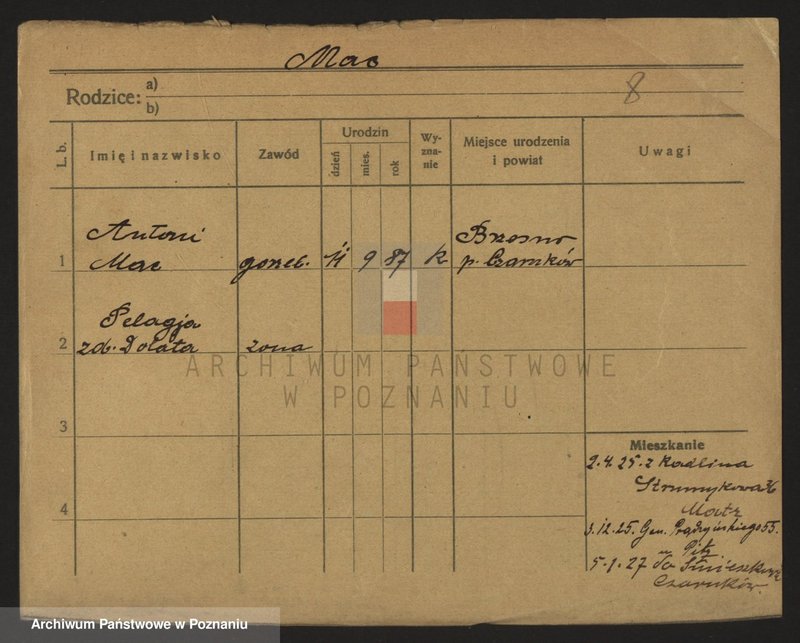 Mac
Rodzice: a)
b)
8
L. b. Imię i nazwisko Zawód Urodzin dzień mies. rok Wy-zna-nie Miejsce urodzenia i powiat Uwagi
Antoni Brzesno
1 Mac gorzel. 11 9 87 k p. Czarnków
Pelagja
2 zd. Dolata żona
ARCHIWUM PAŃSTWOWE
W POZNANIU
3
Mieszkanie
2.4.25. z Radlina
Strumykowa
Matz
4
3.12.25. Gen. Prądzyńskiego 55.
5.1.27 do
Czarnków.
Archiwum Państwowe w Poznaniu